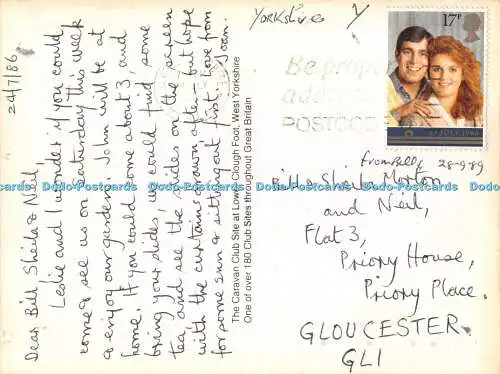 24/7/86
Dear Bill Sheila & Neil,
Leslie and I wonder if you could
come & see us on Saturday this week
& enjoy our garden. John will be at
home. If you could come about 3, and
bring your slides, we could find some
tea and see the slides on the screen
with the curtains drawn after - but hope
for some sun & sitting out first. Love from
Joan.
The Caravan Club Site at Lower Clough Foot, West Yorkshire
One of over 180 Club Sites throughout Great Britain
Yorkshire
Y
17P
22 JULY 1986
Be proper
add
POSTCODE
from Bill 28-9-89
Bill & Sheila Morton
and Neil,
Flat 3,
Priory House,
Priory Place.
GLOUCESTER
GL1
Dodo-Postcards Dodo-Postcards Dodo-Postcards Dodo-Postcards Dodo-Postcards